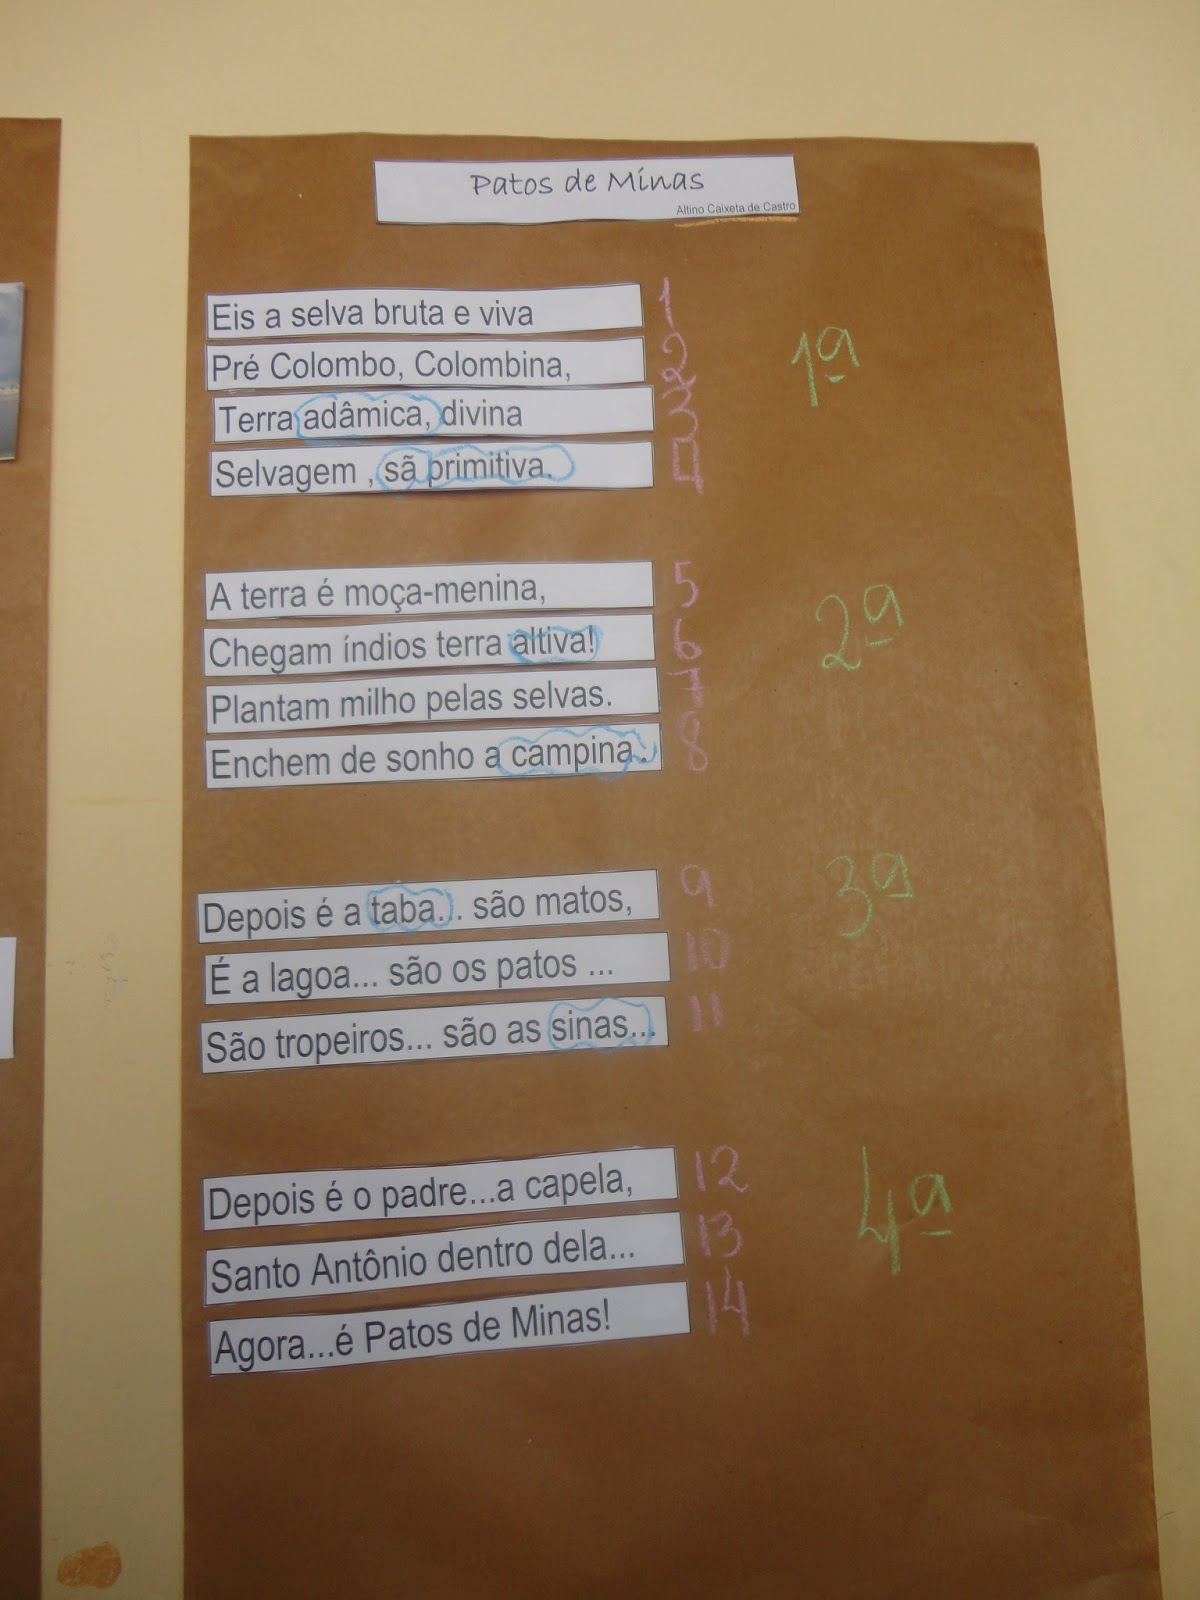 Patos de Minas
Altino Caixeta de Castro
Eis a selva bruta e viva 1
Pré Colombo, Colombina, 2
1ª
Terra adâmica, divina 3
Selvagem , sã primitiva. 4
A terra é moça-menina, 5
2ª
Chegam índios terra altiva! 6
Plantam milho pelas selvas. 7
Enchem de sonho a campina . 8
Depois é a taba... são matos, 9
3ª
É a lagoa... são os patos ... 10
São tropeiros... são as sinas... 11
Depois é o padre...a capela, 12
4ª
Santo Antônio dentro dela... 13
Agora...é Patos de Minas! 14